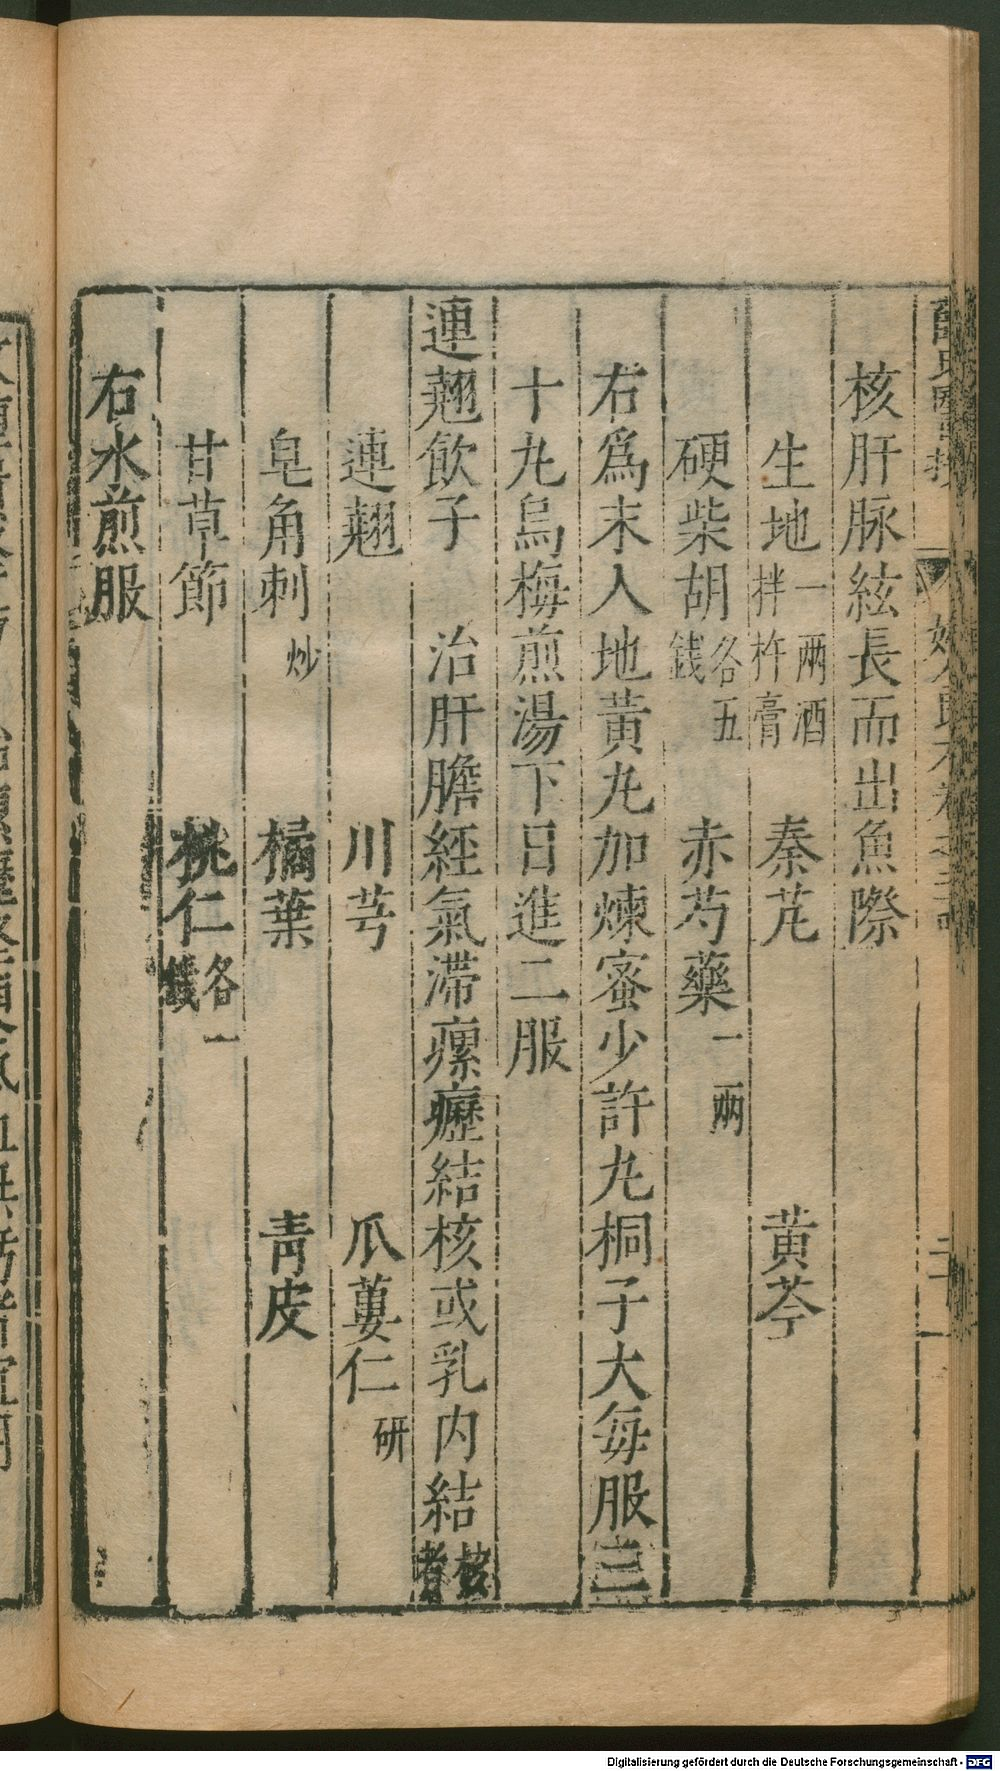 核肝脉絃長而出魚際
生地一兩酒拌杵膏 秦艽 黄芩
硬柴胡各五錢 赤芍藥一兩
右爲末入地黄丸加煉蜜少許丸桐子大每服三
十丸烏梅煎湯下日進二服
連翹飲子 治肝膽經氣滯瘰癧結核或乳内結核者
連翹 川芎 瓜蔞仁研
皂角刺炒 橘葉 青皮
甘草節 桃仁各一錢
右水煎服
Digitalisierung gefördert durch die Deutsche Forschungsgemeinschaft - DFG